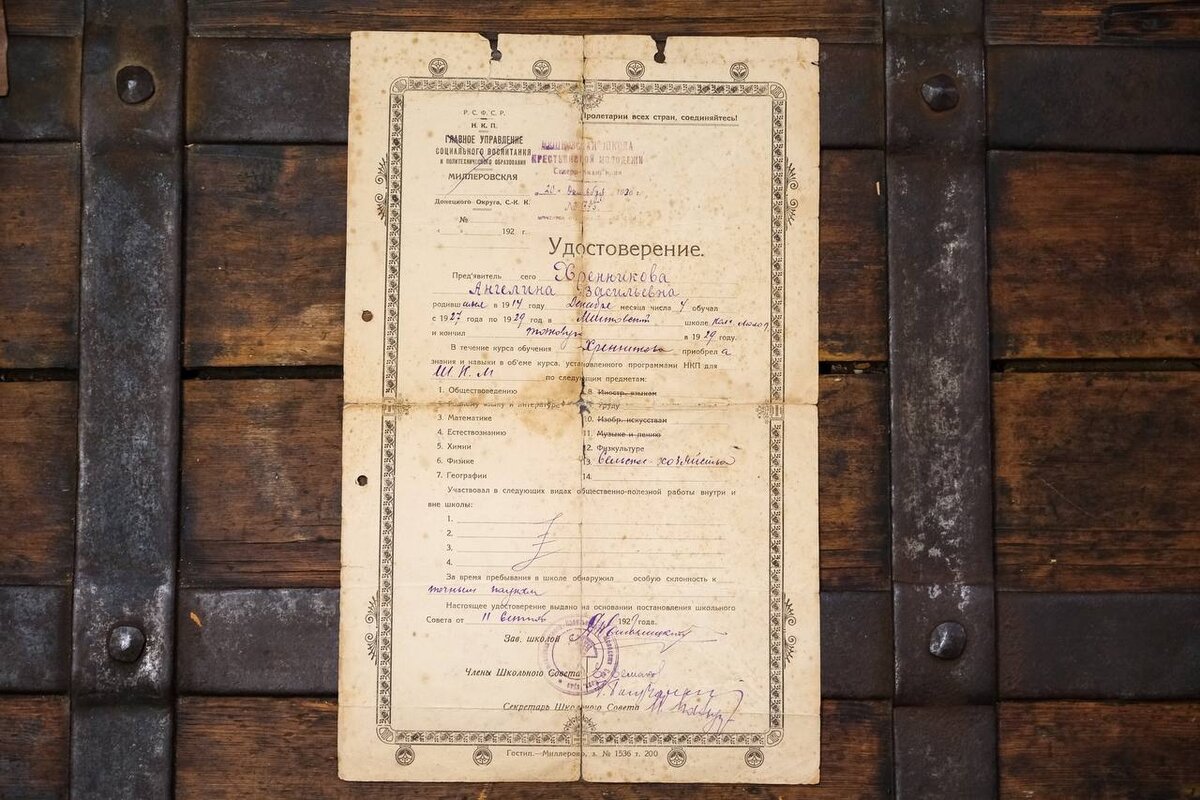 Р. С. Ф. С. Р.
Н. К. П.
ГЛАВНОЕ УПРАВЛЕНИЕ
СОЦИАЛЬНОГО ВОСПИТАНИЯ
И ПОЛИТЕХНИЧЕСКОГО ОБРАЗОВАНИЯ
МИЛЛЕРОВСКАЯ
Донецкого Округа, С.-К. К.
№
192 г.
Пролетарии всех стран, соединяйтесь!
ШКОЛА
КРЕСТЬЯНСКОЙ МОЛОДЕЖИ
Удостоверение.
Пред'явитель сего Хренникова
Ангелина Васильевна
родивш аяся в 1914 году Декабря месяца числа 4 обучал
с 1927 года по 1929 год в школе
и кончил в 1929 году.
В течение курса обучения Хренникова приобрел а
знания и навыки в об'еме курса, установленного программами НКП для
Ш К М по следующим предметам:
1. Обществоведению
языку и литературе
3. Математике
4. Естествознанию
5. Химии
6. Физике
7. Географии
8. Иностр. языкам
Труду
10. Изобр. искусствам
11. Музыке и пению
12. Физкультуре
13. Сельское-хозяйство
14.
Участвовал в следующих видах общественно-полезной работы внутри и
вне школы:
1.
2.
3.
4.
За время пребывания в школе обнаружил особую склонность к
точным наукам
Настоящее удостоверение выдано на основании постановления школьного
Совета от 11 1929 года.
Зав. школой
Члены Школьного Совета
Секретарь Школьного Совета
Гостип.—Миллерово, з. № 1536 т. 200